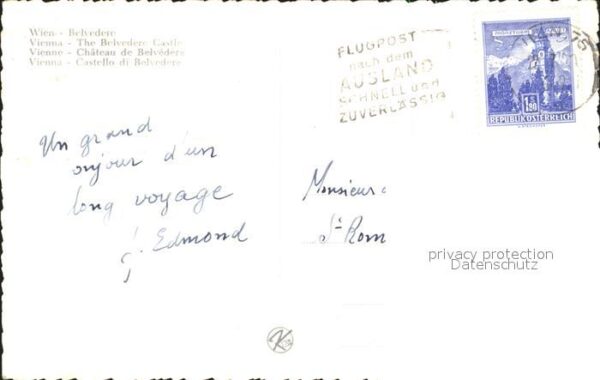 Wien - Belvedere
Vienna - The Belvedere Castle
Vienne - Château de Belvédère
Vienna - Castello di Belvedere
FLUGPOST
nach dem
AUSLAND
SCHNELL und
ZUVERLÄSSIG
75
1.80
REPUBLIK ÖSTERREICH
Un grand
onjour d'un
long voyage
J. Edmond
Monsieur
St Rom
privacy protection
Datenschutz
K